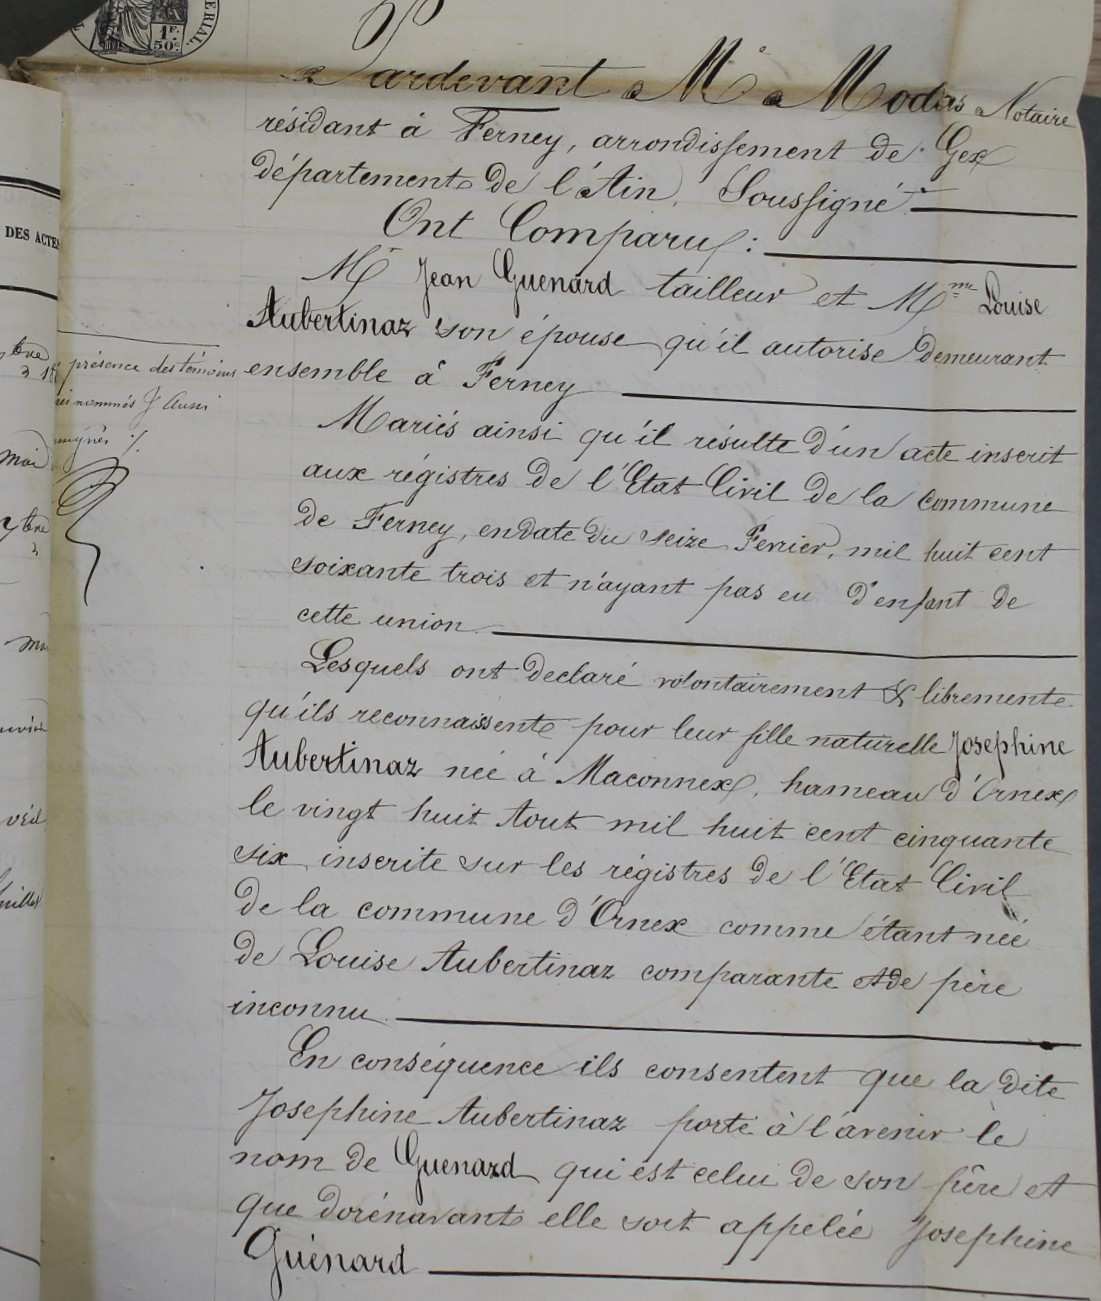 ERIAL.
1F.
50c
Pardevant Me Modas Notaire
résidant à Ferney, arrondissement de Gex
département de l'Ain, Soussigné
Ont Comparus :
Mr Jean Guenard tailleur et Mme Louise
Aubertinaz son épouse qu'il autorise demeurant
ensemble à Ferney
Mariés ainsi qu'il résulte d'un acte inscrit
aux régistres de l'Etat Civil de la commune
de Ferney, en date du seize Fevrier, mil huit cent
soixante trois et n'ayant pas eu d'enfant de
cette union
Lesquels ont declaré volontairement & librement
qu'ils reconnaissent pour leur fille naturelle Josephine
Aubertinaz neé à Maconnex, hameau d'Ornex
le vingt huit Aout mil huit cent cinquante
six inscrite sur les régistres de l'Etat Civil
de la commune d'Ornex comme étant neé
de Louise Aubertinaz comparante et de père
inconnu
En conséquence ils consentent que la dite
Josephine Aubertinaz porte à l'avenir le
nom de Guenard qui est celui de son père et
que dorénavant elle soit appelée Josephine
Guénard
DES ACTE
présence des témoins
nommés & aussi